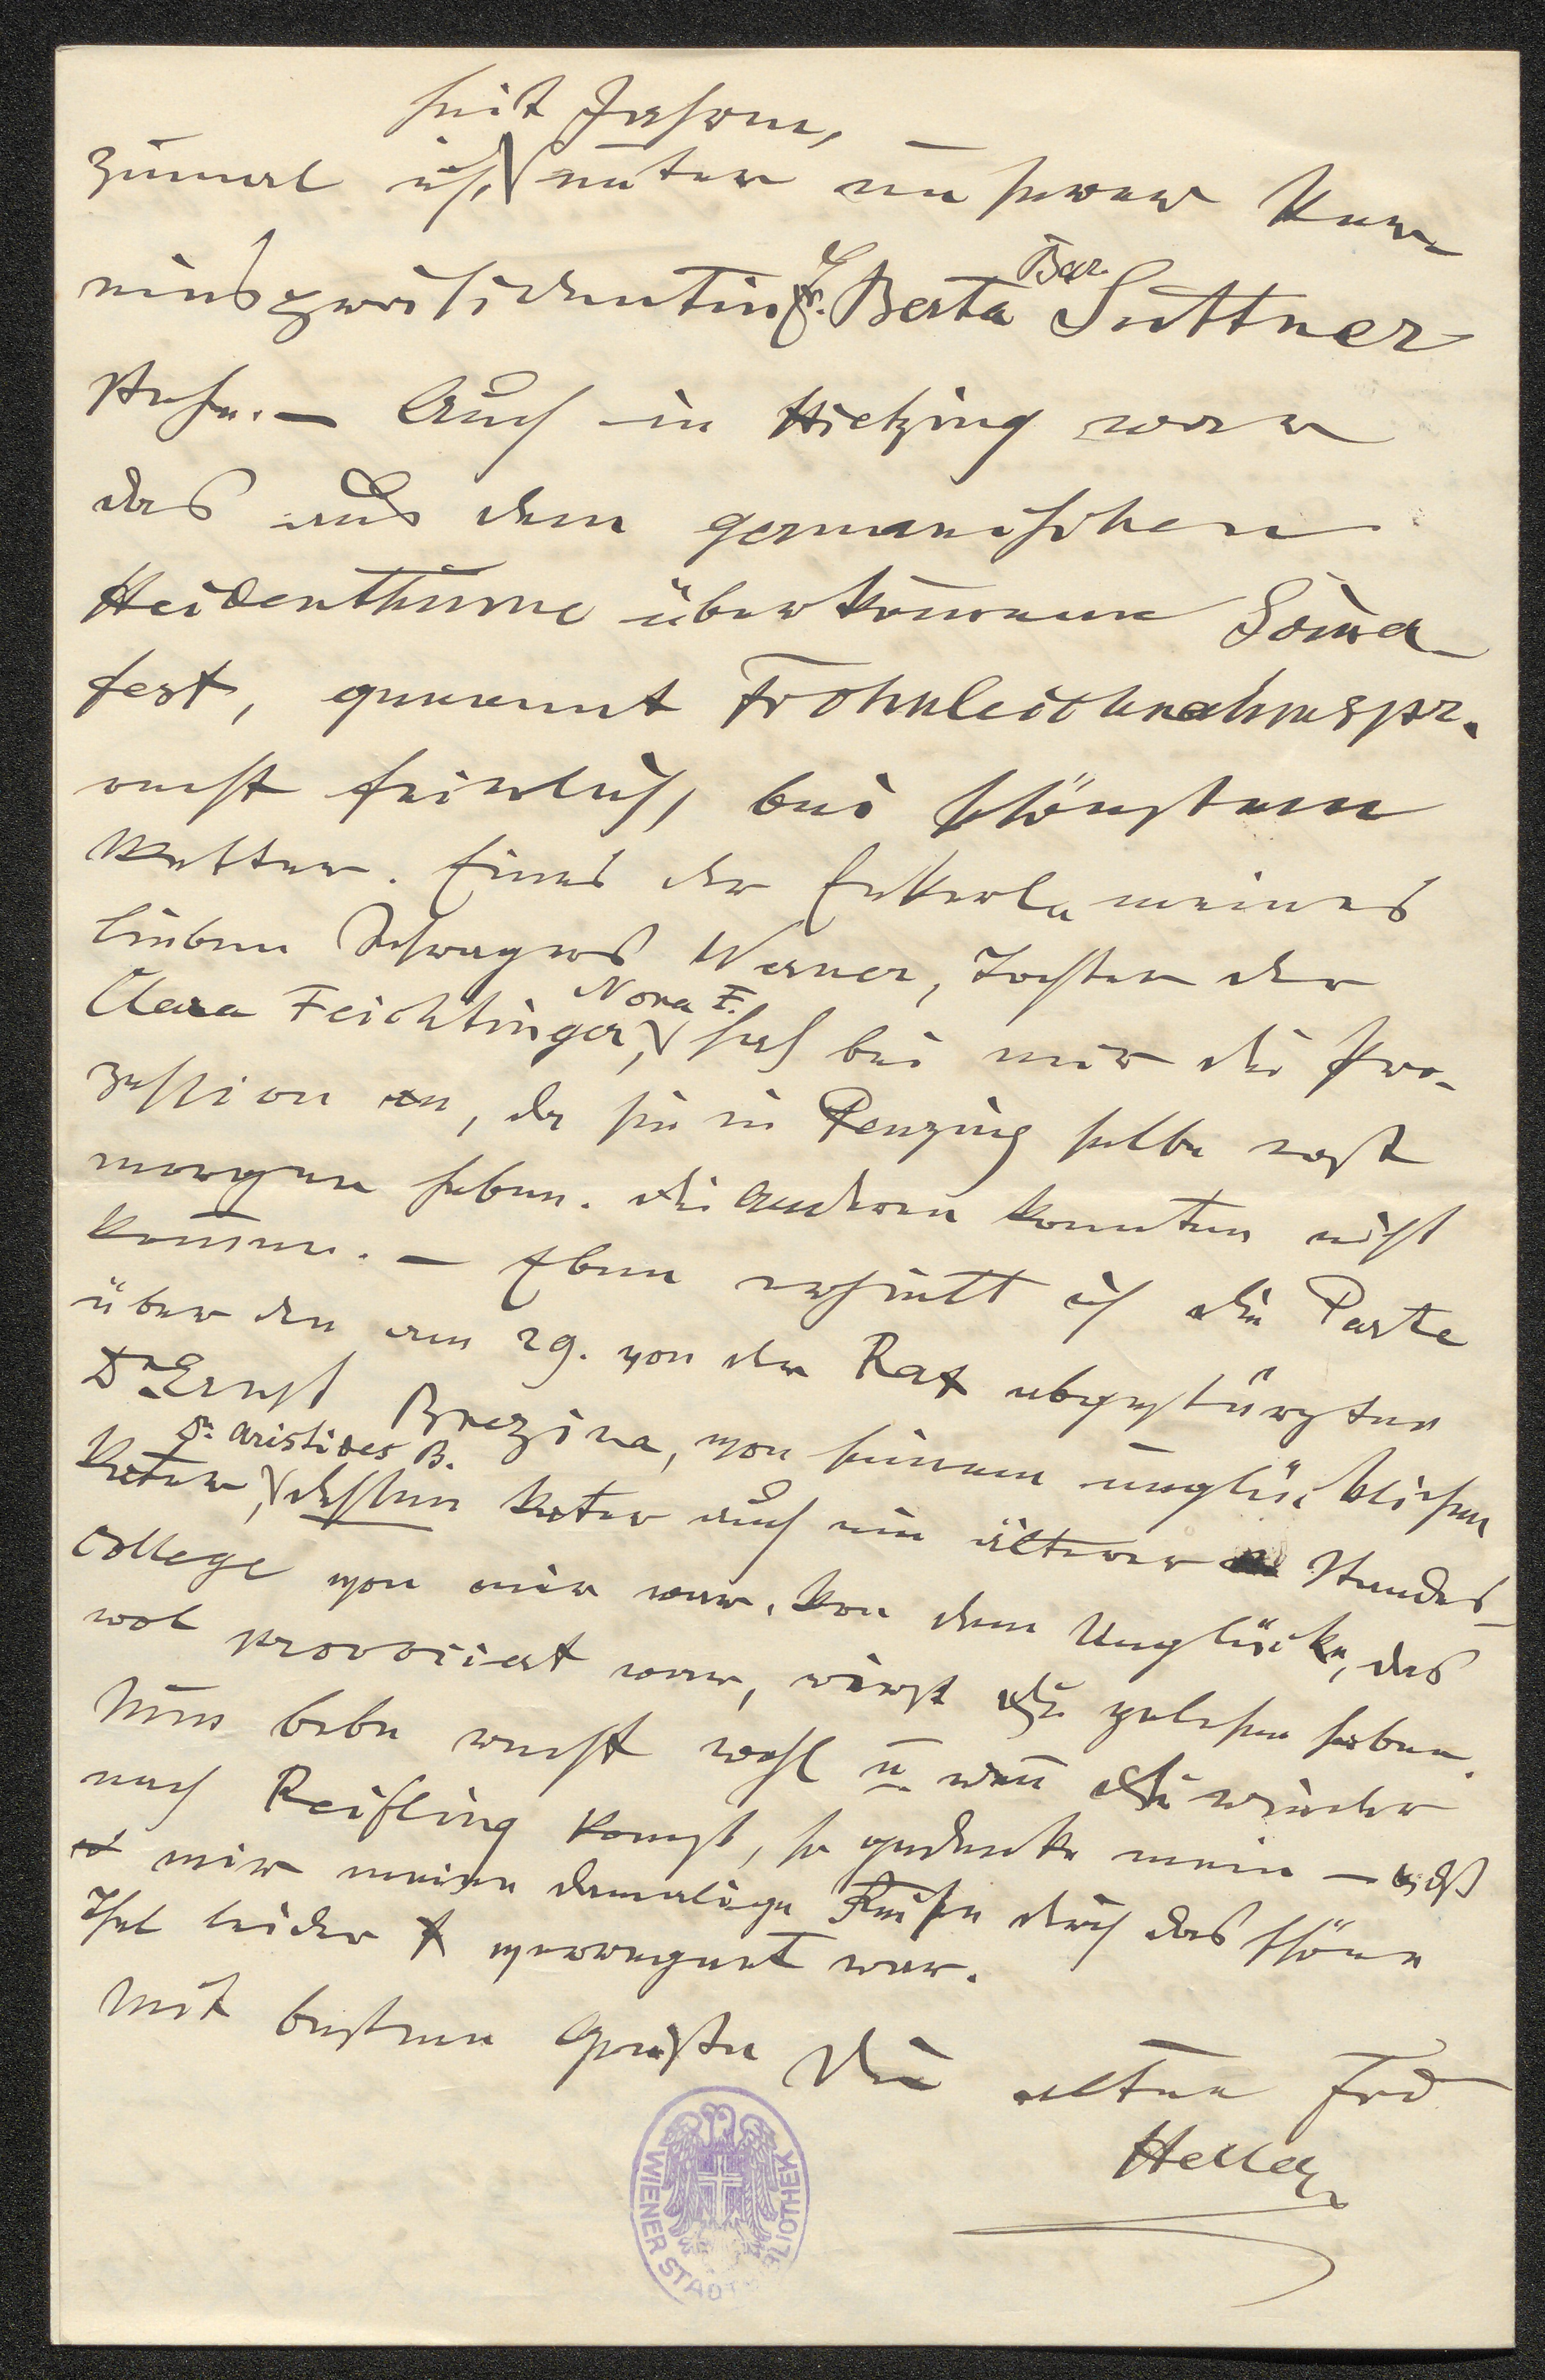 seit Jahren,
zumal ich unter unserer Ver
einspräsidentin Fr. Berta Bar. Suttner
stehe. – Auch in Hietzing war
das aus dem germanischen
Heidenthume überkom̄ene Som̄er
fest, genannt Frohnleichnahmspr.
recht feierlich, bei schönstem
Wetter. Eines der Enkerln meines
lieben Schwagers Werner, Tochter der
Clara Feichtinger, Nora F. sah bei mir die Pro-
zession an, da sie in Penzing selbe erst
morgen haben. Die Anderen konnten nicht
kom̄en. – Eben erhielt ich die Parte
über den am 29. von der Rax abgestürzten
Dr Ernst Brezina, von seinem unglücklichen
Dr Aristides B.
Vater, dessen Vater auch ein älterer Standes-
college von mir war. Von dem Unglücke, das
wol provociert war, wirst Du gelesen haben.
Nun lebe recht wohl u. wen̄ Du wieder
nach Reifling kom̄st, so gedenke mein – daß
mir meine damalige Reise durch das schöne
Thal leider verregnet war.
Mit besten Grüßen Dein alter Frd
Heller
WIENER STADTBIBLIOTHEK